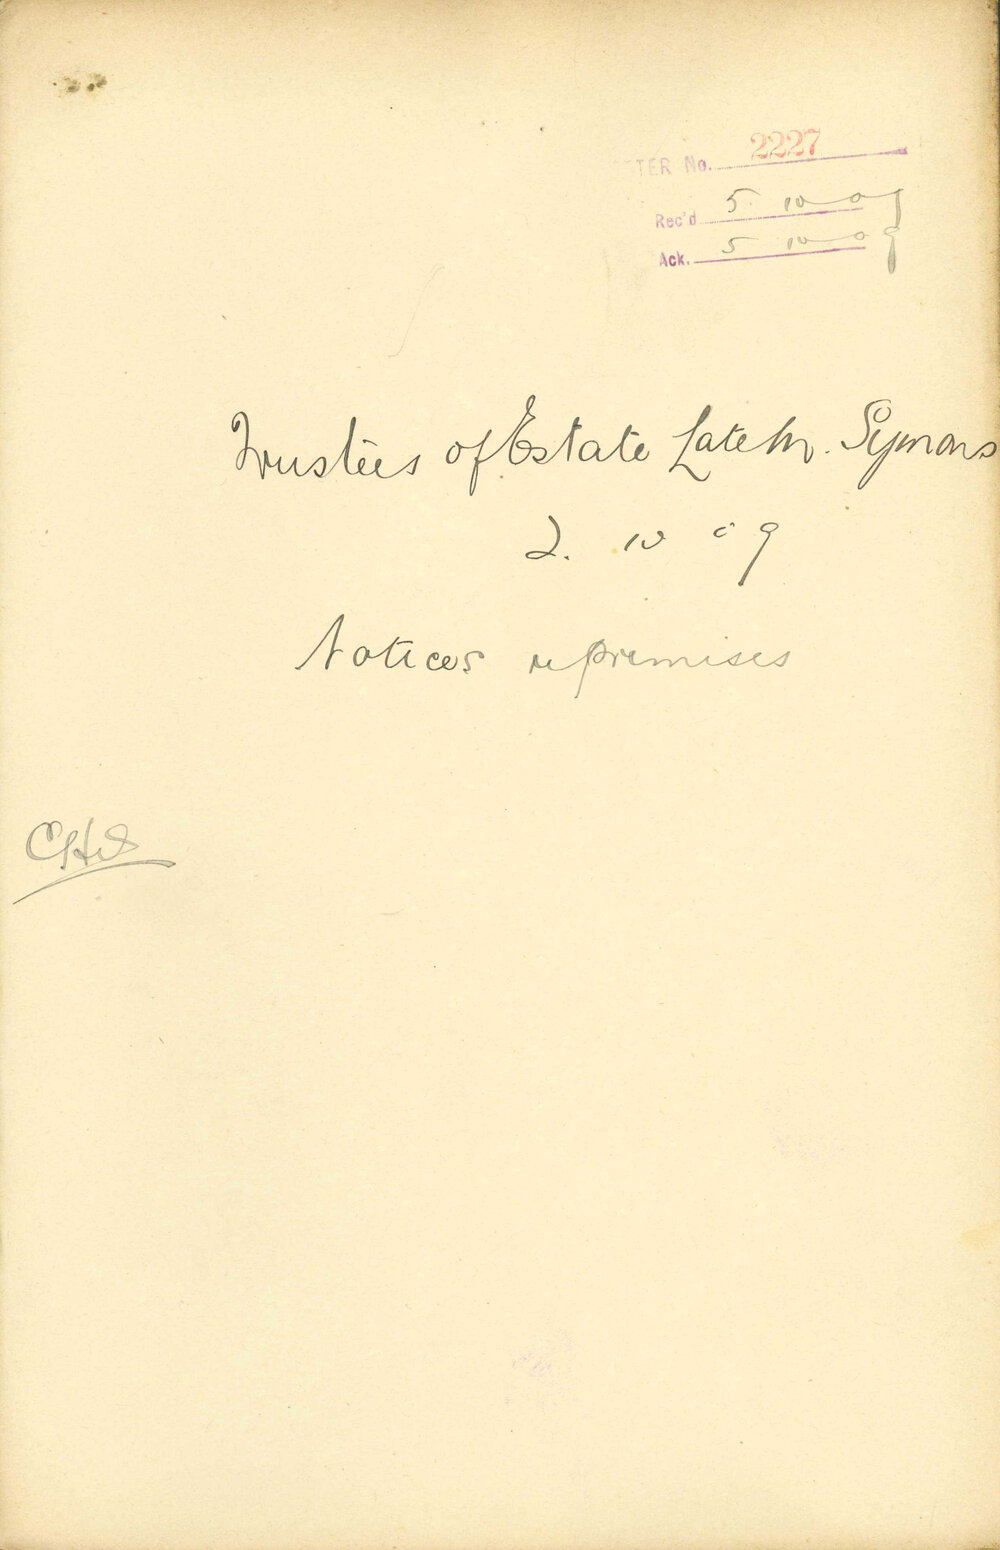 TER No. 2227
Rec'd 5. 10 09
Ack. 5 10 09
Trustees of Estate Late M. Symons
2. 10 09
Notices re premises